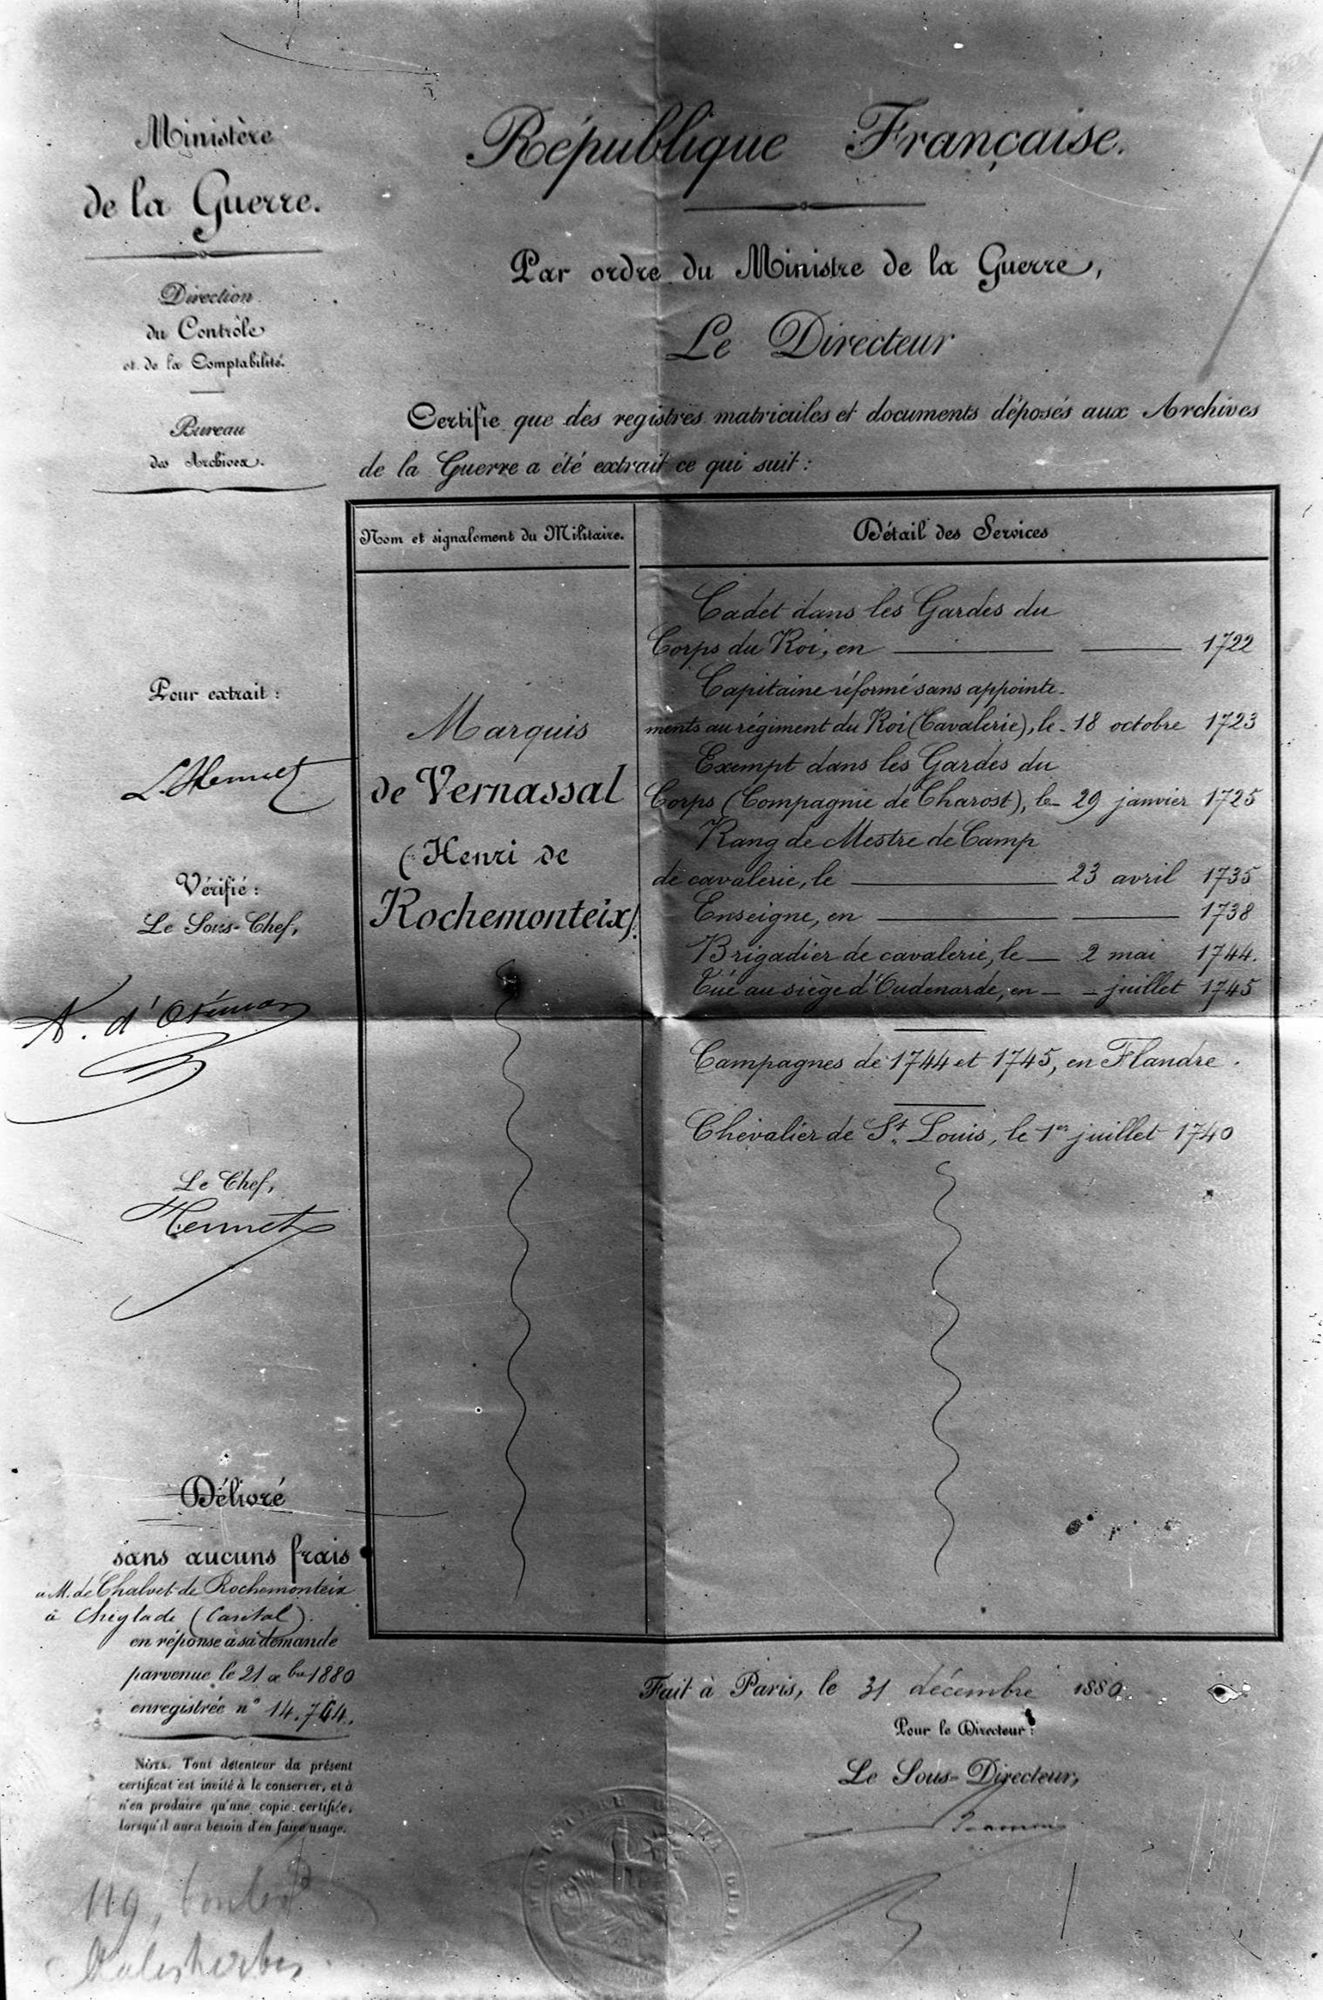 Ministère
de la Guerre.
Direction
du Contrôle
et de la Comptabilité.
Bureau
des Archives.
République Française.
Par ordre du Ministre de la Guerre,
Le Directeur
Certifie que des registres matricules et documents déposés aux Archives
de la Guerre a été extrait ce qui suit :
Nom et signalement du Militaire.
Détail des Services
Marquis
de Vernassal
(Henri de
Rochemonteix).
Cadet dans les Gardes du
Corps du Roi, en 1722
Capitaine réformé sans appointe-
ments au régiment du Roi (Cavalerie), le 18 octobre 1723
Exempt dans les Gardes du
Corps (Compagnie de Charost), le 29 janvier 1725
Rang de Mestre de Camp
de cavalerie, le 23 avril 1735
Enseigne, en 1738
Brigadier de cavalerie, le 2 mai 1744.
Tué au siège d'Oudenarde, en juillet 1745
Campagnes de 1744 et 1745, en Flandre.
Chevalier de St. Louis, le 1er juillet 1740
Pour extrait :
L. Hennet
Vérifié :
Le Sous-Chef,
A. d'
Le Chef,
Hennet
Délivré
sans aucuns frais
à M. de Chalvet de Rochemonteix
à Cheylade (Cantal).
en réponse à sa demande
parvenue le 21 xbre 1880
enregistrée n° 14.764.
NOTA. Tout détenteur du présent
certificat est invité à le conserver, et à
n'en produire qu'une copie certifiée,
lorsqu'il aura besoin d'en faire usage.
Fait à Paris, le 31 décembre 1880
Pour le Directeur :
Le Sous-Directeur,
MINISTERE DE LA GUERRE
119, boulevd
Malesherbes.